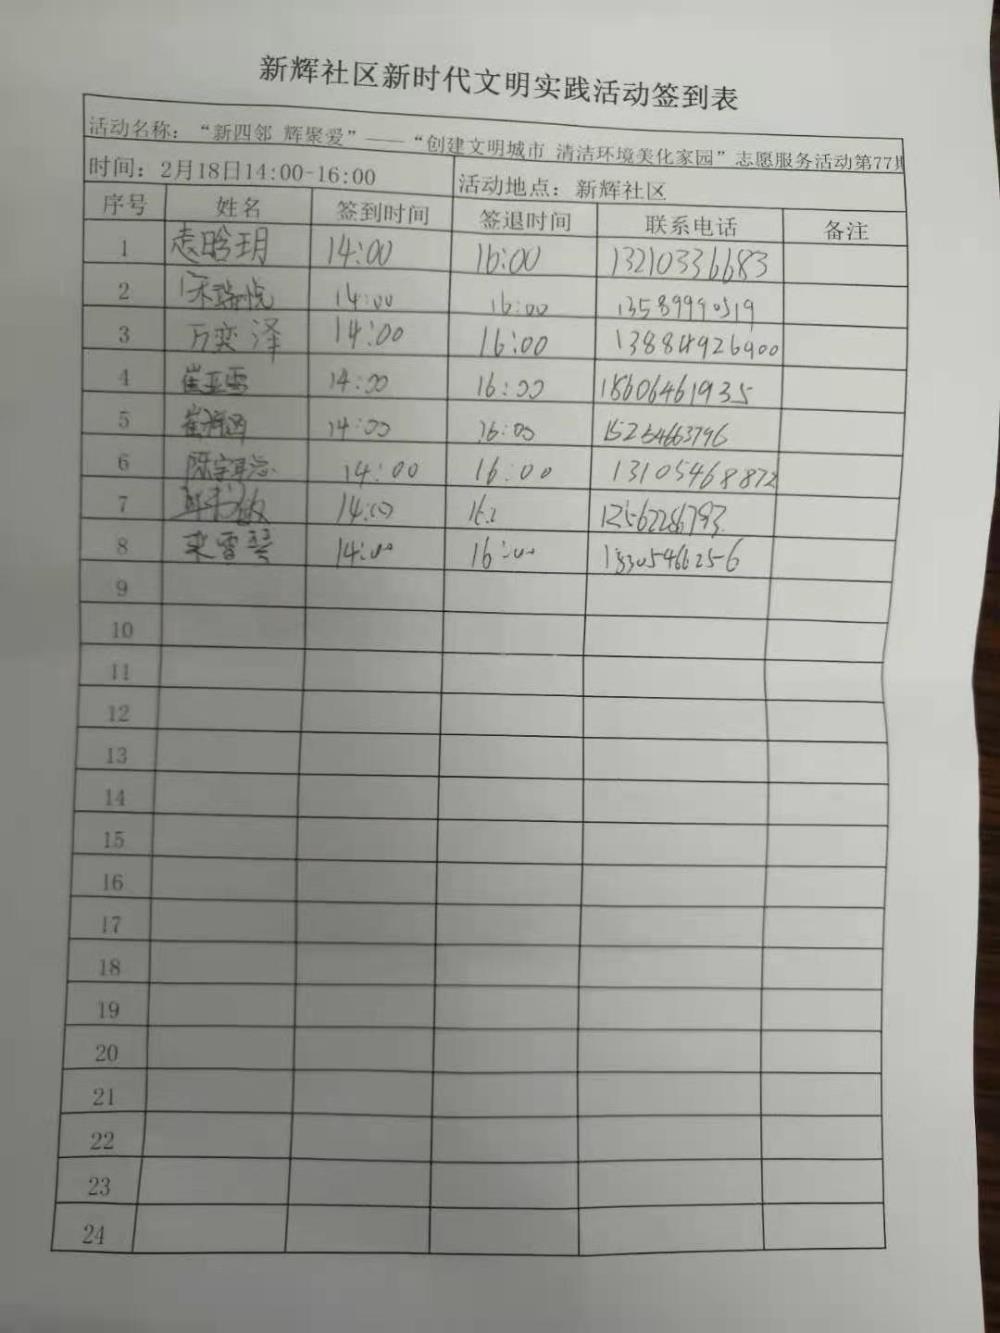 新辉社区新时代文明实践活动签到表
活动名称：“新四邻 辉聚爱”——“创建文明城市 清洁环境美化家园”志愿服务活动第77期
时间：2月18日14:00-16:00 活动地点：新辉社区
序号 姓名 签到时间 签退时间 联系电话 备注
1 14:00 16:00 13210336683
2 宋瑞悦 14:00 16:00 13589990519
3 万奕泽 14:00 16:00 13884926900
4 崔亚雪 14:00 16:00 18606461935
5 14:00 16:00 15254663796
6 14:00 16:00 13105468872
7 14:00
8 14:00 16:00 18305466256
9
10
11
12
13
14
15
16
17
18
19
20
21
22
23
24